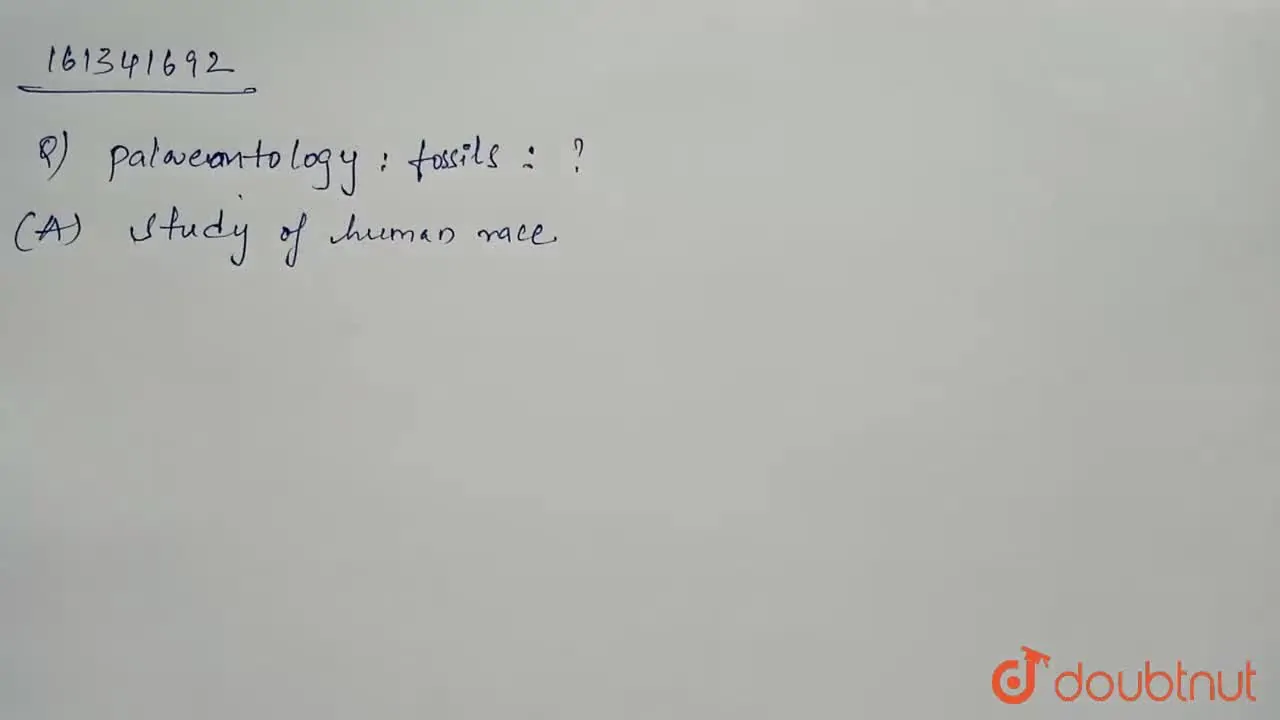 161341692
Q) palaeontology : fossils : ?
(A) study of human race
doubtnut